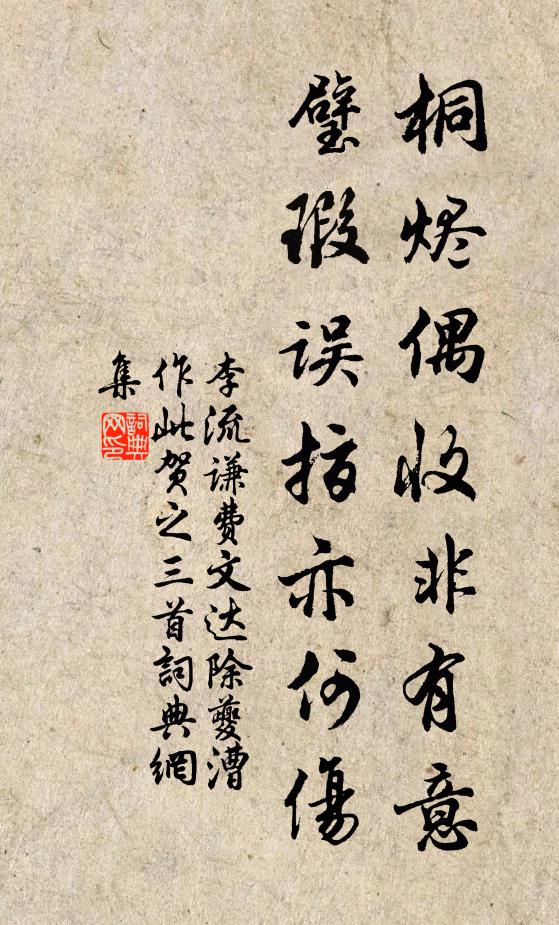 桐烬偶收非有意
璧瑕误指亦何傷
李流谦费文达除夔漕
作此贺之三首詞典網
集
詞典网印